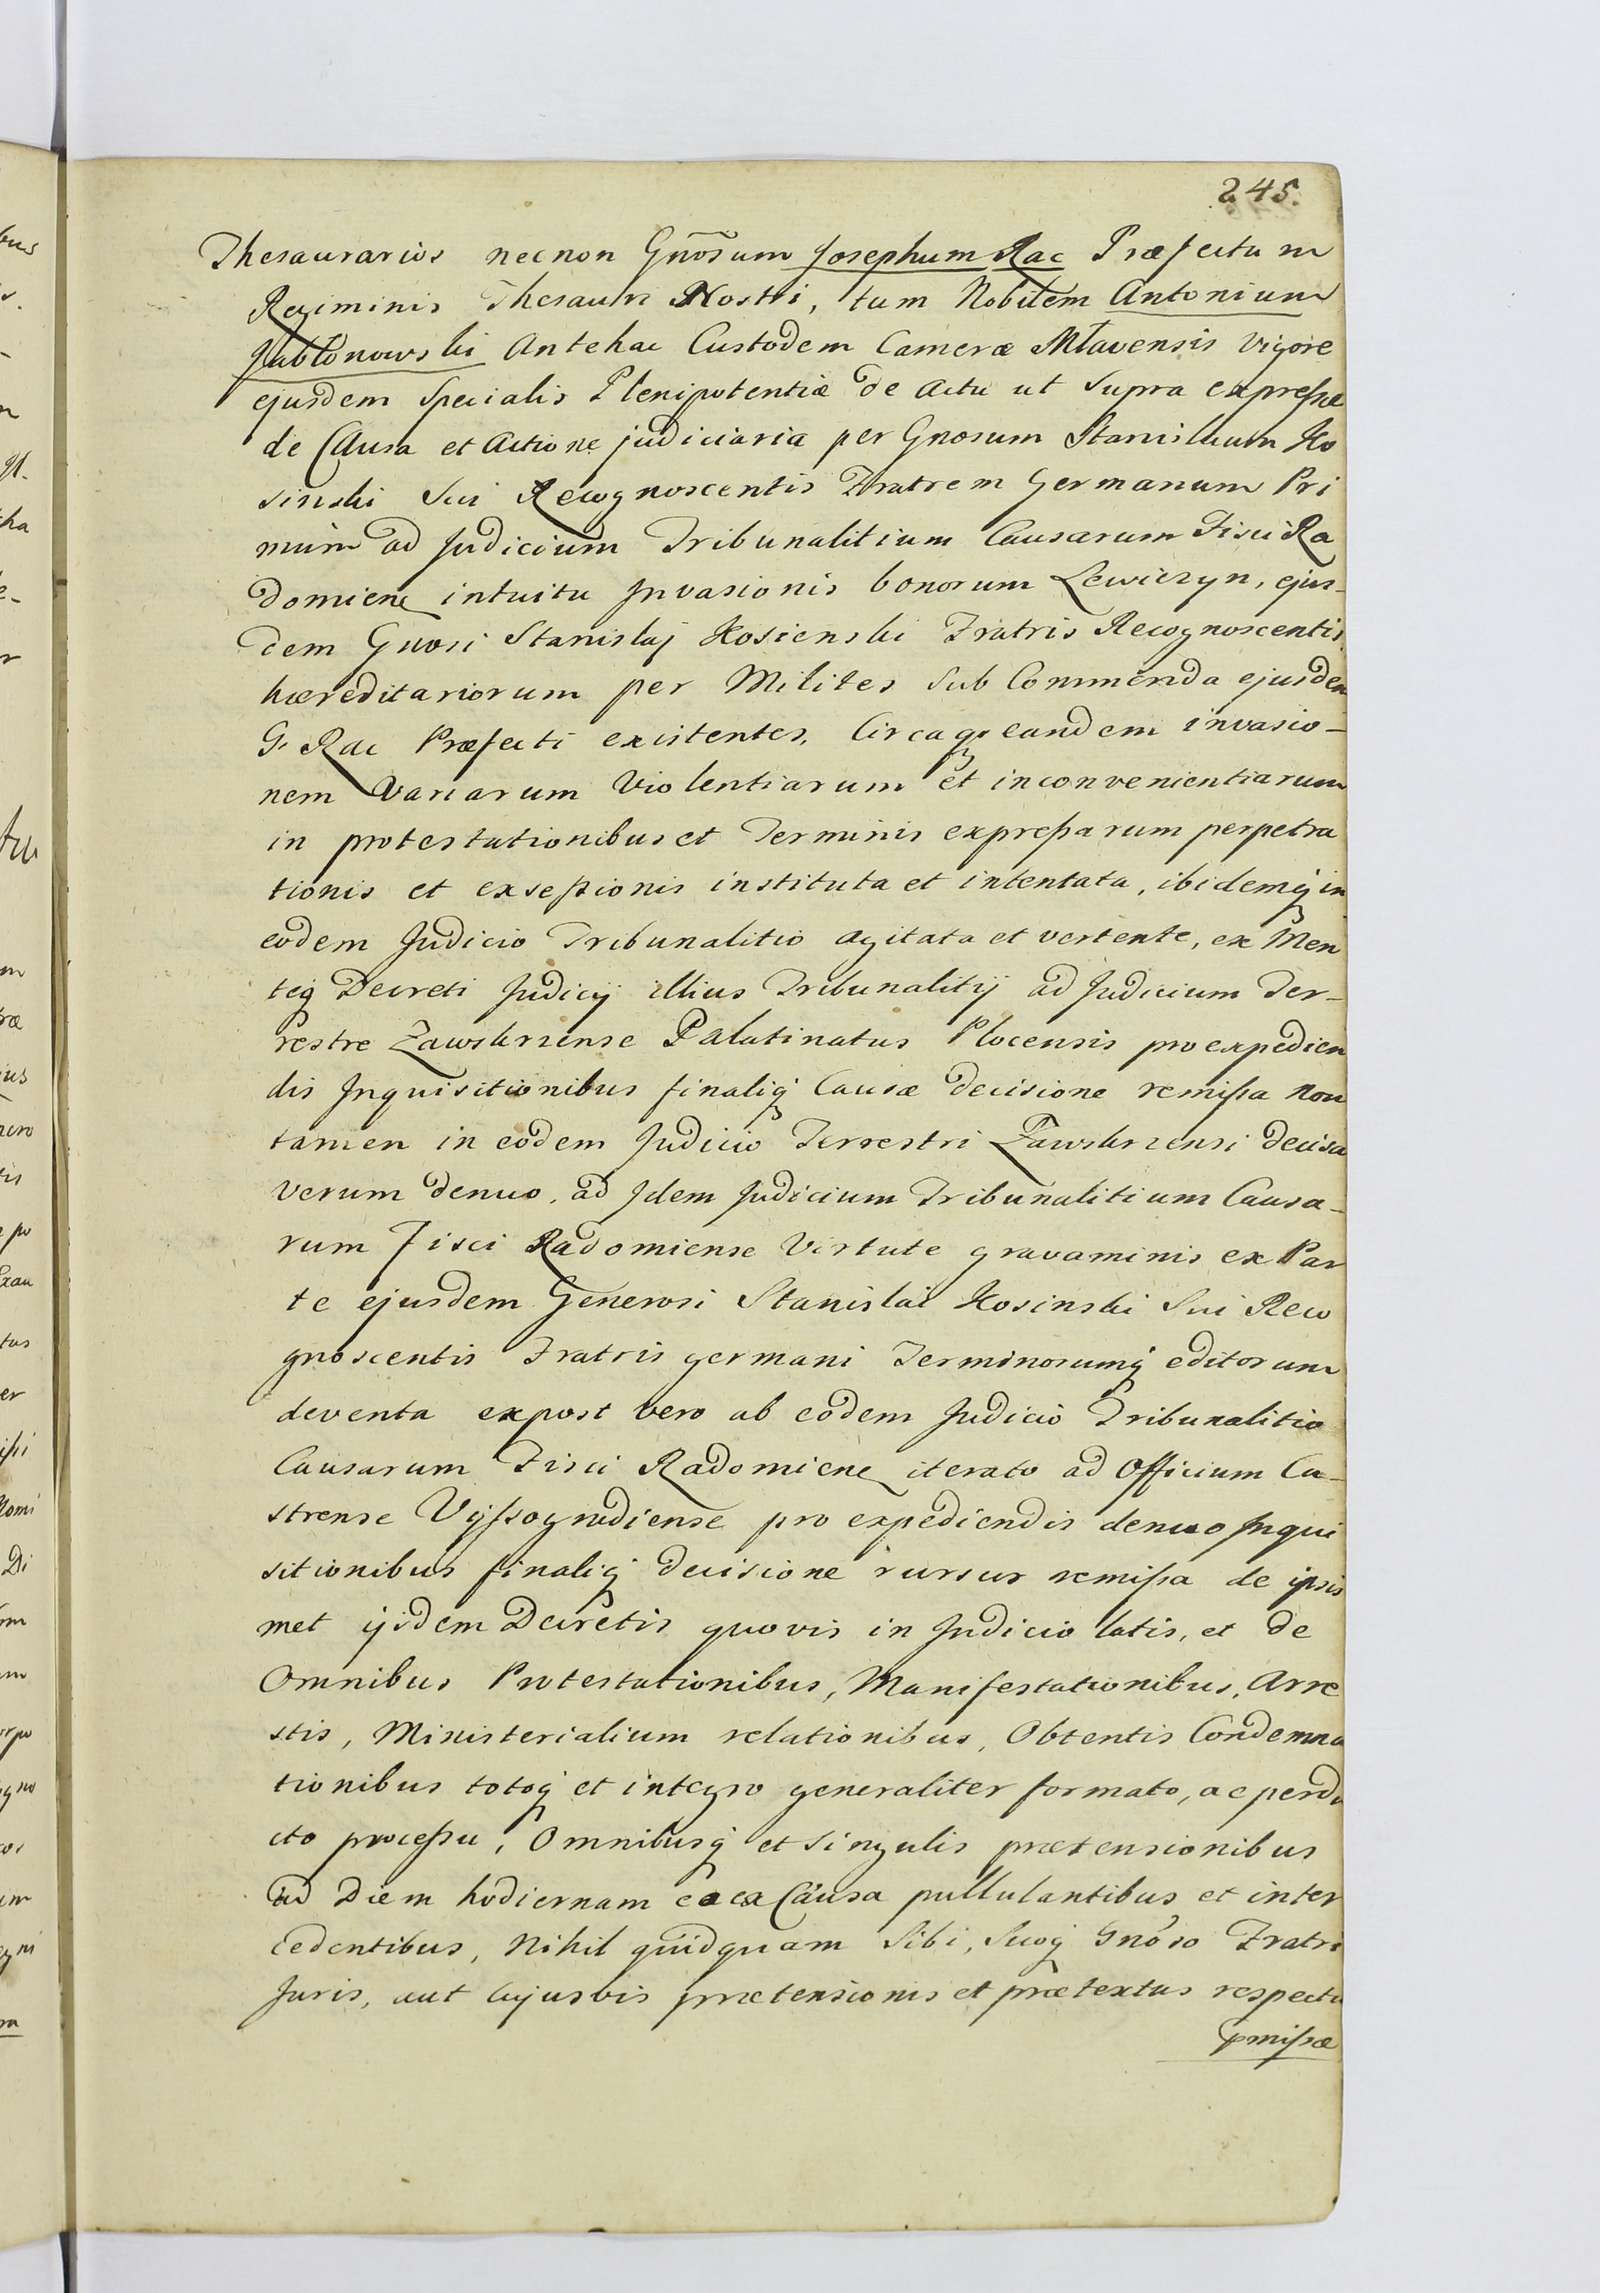 245.
Thesaurarios necnon Gnõsum Josephum Rac Præfectum
Regiminis Thesauri Nostri, tum Nobilem Antonium
Jabłonowski Antehac Custodem Cameræ Mławensis Vigore
ejusdem Specialis Plenipotentiæ de Actu ut Supra expressæ
de Causa et Actione judiciaria per Gnosum Stanislaum Ko
sinski Sui Recognoscentis Fratrem Germanum Pri
mum ad Judicium Tribunalitium Causarum Fisci Ra
domiene intuitu Invasionis bonorum Lewiczyn, ejus-
dem Gnosi Stanislaj Kosienski Fratris Recognoscentis
hæreditariorum per Milites Sub Commenda ejusdem
G. Rac Præfecti existentes, Circaq, eandem invasio-
nem Variarum Violentiarum et inconvenientiarum
in protestationibus et Terminis expressarum perpetra
tionis et exsessionis instituta et intentata, ibidemq in
eodem Judicio Tribunalitio agitata et vertente, ex Men
teq Decreti Judicij illius Tribunalitij ad Judicium Ter-
restre Zawskrzense Palatinatus Plocensis pro expedien
dis Inquisitionibus finaliq Causæ decisione remissa non
tamen in eodem Judicio Terrestri Zawskrzensi decisa
Verum denuo, ad Idem Judicium Tribunalitium Causa-
rum Fisci Radomiense Virtute gravaminis ex Par
te ejusdem Generosi Stanislai Kosinski Sui Reco
gnoscentis Fratris germani Terminorumq editorum
deventa expost vero ab eodem Judicio Tribunalitio
Causarum Fisci Radomiene iterato ad Officium Ca-
strense Vyssogrodiense pro expediendis denuo Inqui
sitionibus finaliq decisione rursus remissa de ipsis
met ijsdem Decretis quovis in Judicio latis, et de
Omnibus Protestationibus, Manifestationibus, Arre
stis, Ministerialium relationibus, Obtentis Condemna
tionibus totoq et integro generaliter formato, ac perdu
cto processu, Omnibusq et singulis prætensionibus
ad Diem hodiernam ea ex Causa pullulantibus et inter
cedentibus, Nihil quidquam Sibi, Suoq Gnõso Fratri
Juris, aut Cujusvis prætensionis et prætextus respectu
pmissæ